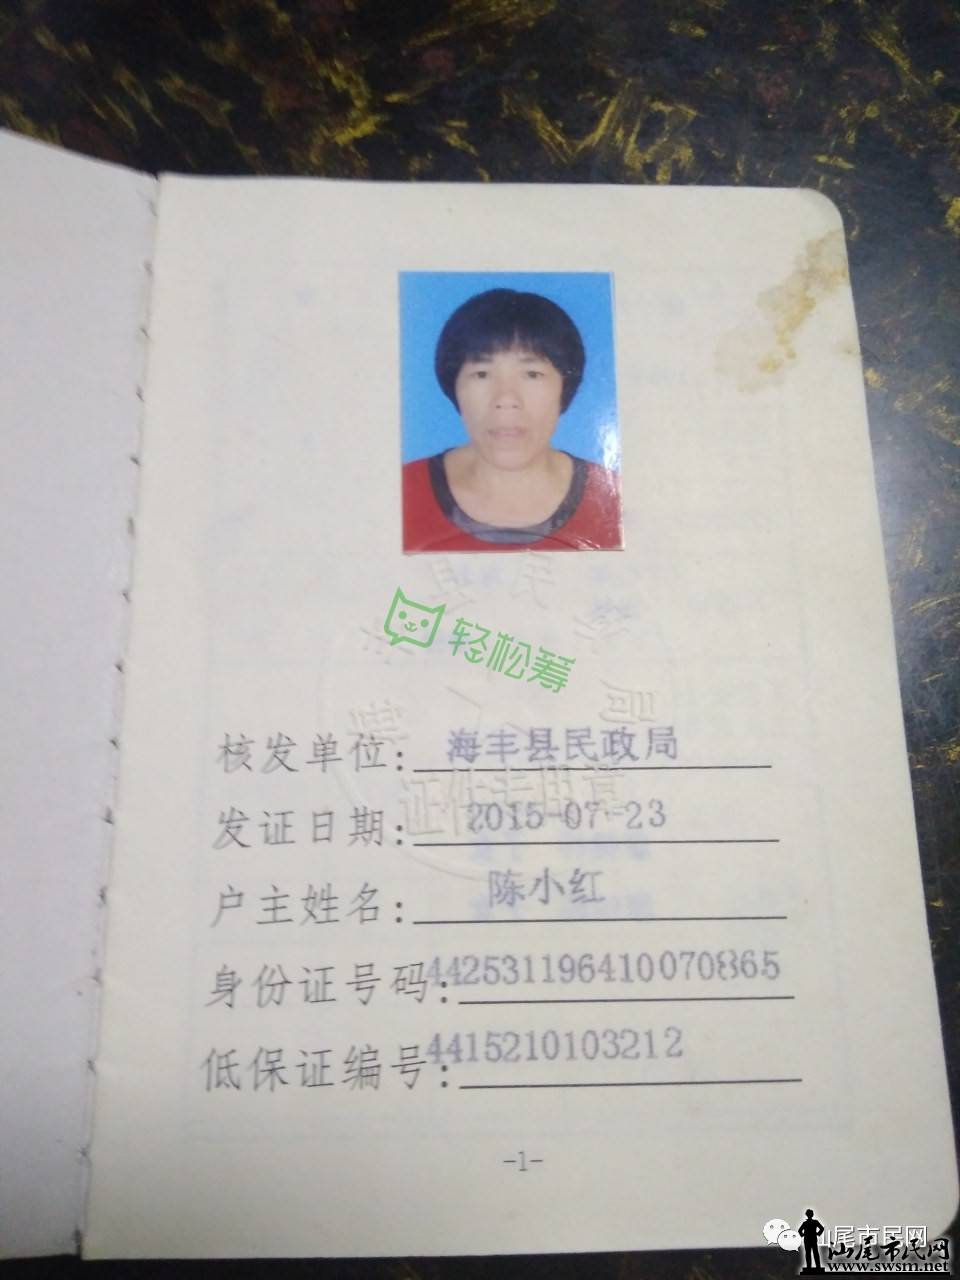 轻松筹
核发单位：海丰县民政局
发证日期：2015-07-23
户主姓名：陈小红
身份证号码：442531196410070865
低保证编号：4415210103212
-1-
汕尾市民网
汕尾市民网
www.swsm.net